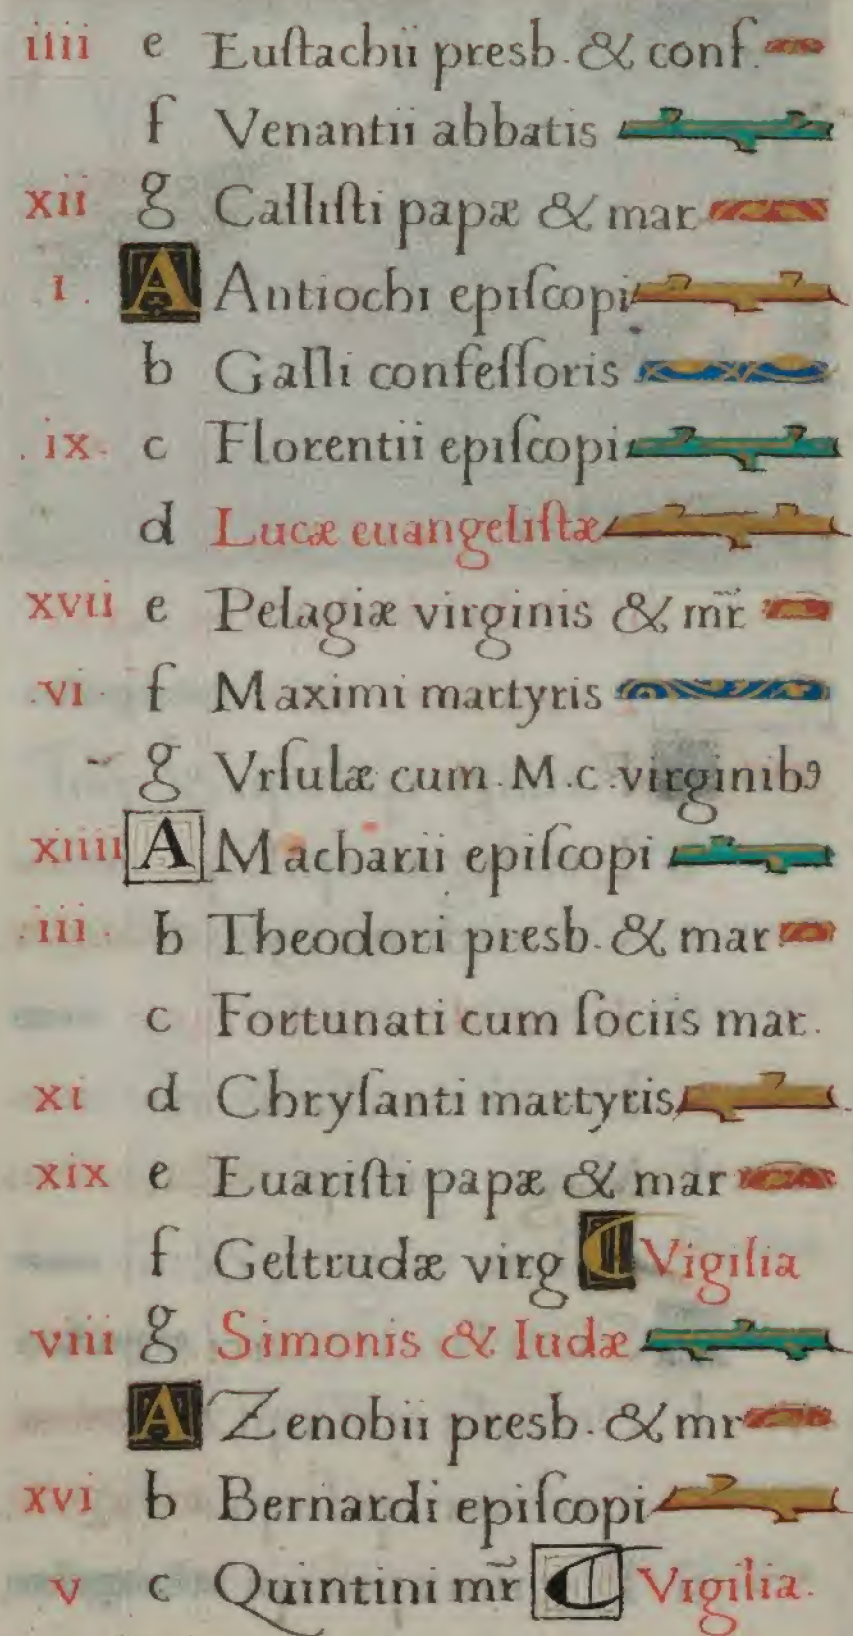 iiii e Euſtachii presb. & conf.
f Venantii abbatis
xii g Calliſti papæ & mar
.i. A Antiochi epiſcopi
b Galli confeſſoris
.ix. c Florentii epiſcopi
d Lucæ euangeliſtæ
xvii e Pelagiæ virginis & mr̃
.vi. f Maximi martyris
g Vrſulæ cum .M.c. virginibꝰ
xiiii A Macharii epiſcopi
.iii. b Theodori presb. & mar
c Fortunati cum ſociis mar.
xi d Chryſanti martyris
xix e Euariſti papæ & mar
f Geltrudæ virg ¶ Vigilia
viii g Simonis & Iudæ
A Zenobii presb. & mr
xvi b Bernardi epiſcopi
v c Quintini mr̃ ¶ Vigilia.